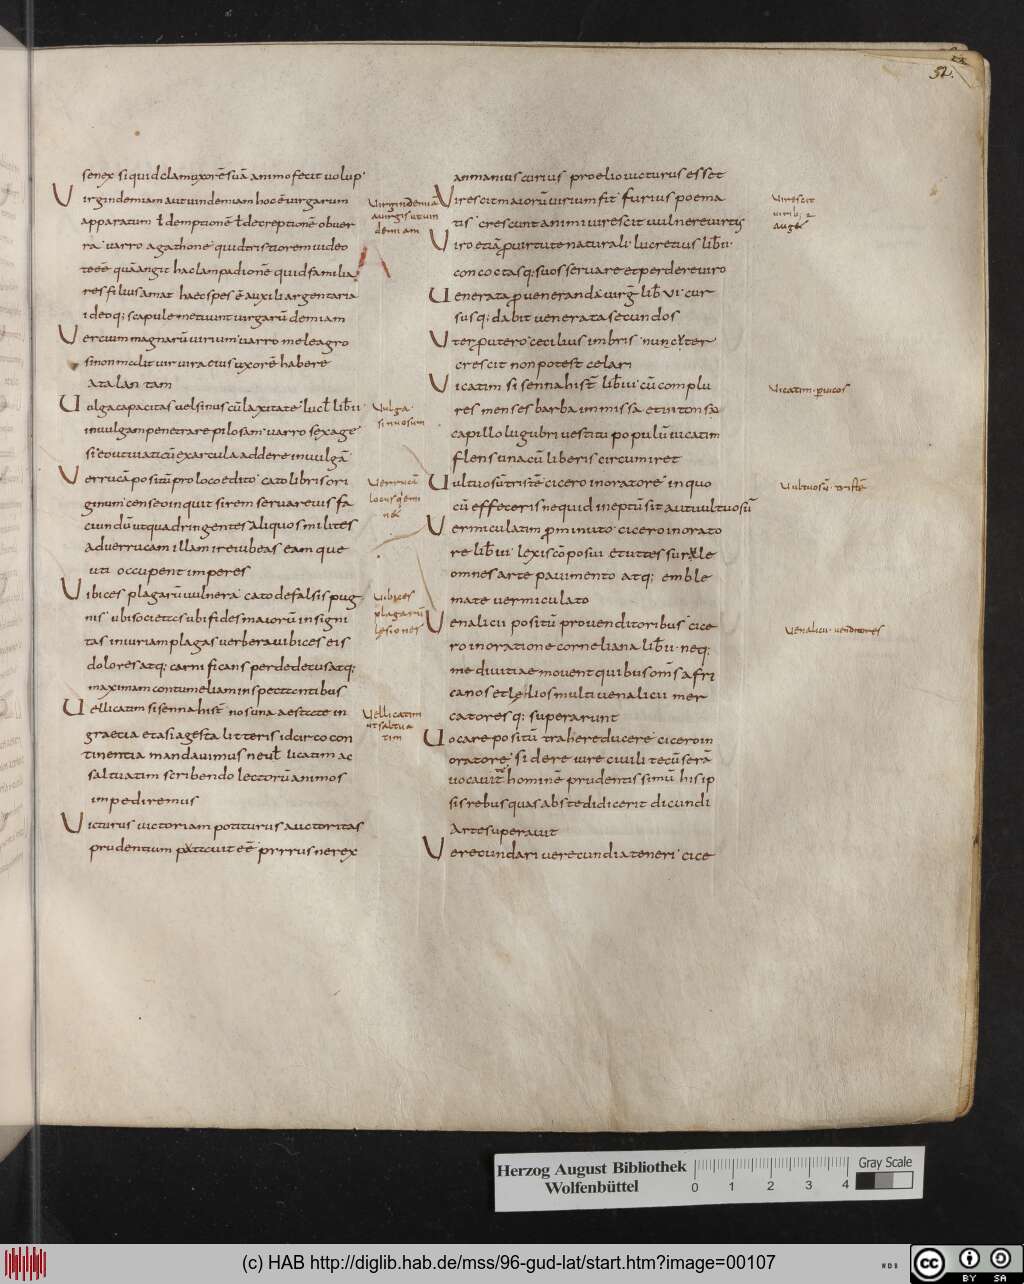 52.
senex siquid clam uxorē suā animo fecit volup
Virgindemiam aut vindemiam hoc ē virgarum
apparatum ł demptionē ł decreptionē obver
ra varro agathone quid tristiorem video
te eē quā angit hac lampadionē quid familia
res filius amat haec spes ē auxili argentaria
ideoq; scapule metuunt virgarū demiam
Vercum magnarū virium varro meleagro
atalantam
Vulga capacitas vel sinus cū laxitate lucł libii
in vulgam penetrare pilosam varro sexage
Verrucā positū pro loco edito cato libris ori
ginum censeo inquit si rem servare vis fa
ciundū ut quadringentes aliquos milites
ad verrucam illam ire iubeas eam que
uti occupent imperes
Vibices plagarū vulnera cato de falsis pug
nis
tas iniuriam plagas verbera vibices eis
dolores atq; carnificans perdedecus atq;
maximam contumeliam inspectantibus
Vellicatim sisenna hist nos una aestate in
graecia et asia gesta litteris idcirco con
tinentia mandavimus ne vel licatim ac
saltuatim scribendo lectorū animos
impediremus
Victurus victoriam potiturus auctoritas
Virgindemia
demiam
Vulga
sinuosum
Verrucā
Vibices
plagarū
lesiones
Vellicatim
ut saltua
tim
annanius curius proelio victurus esset
Virescit maiorū virium fit furius poema
tis crescunt animi virescit vulnere virtus
Viro etiā pro virtute naturali lucretius libii
concoctasq; suos servare et perdere viro
Venerata pro veneranda virg lib vi cur
susq; dabit venerata secundos
Uter putero cecilius imbris nunc uter
crescit non potest celari
Vicatim sisenna hist lib iii cū complu
res menses barba immissa et intonso
capillo lugubri vestitu populū vicatim
flens una cū liberis circumiret
Vultuosū tristē cicero in oratore in quo
cū effeceris ne quid ineptū sit aut vultuosū
Vermiculatim pro minuto cicero in orato
re lib iii lexis cōposui et uttes surle
omnes arte pavimento atq; emble
mate vermiculato
Venalicii positū pro venditoribus cice
ro in oratione corneliana lib ii neq;
me divitiae movent quibus oms afri
canos et lelios multi venalicii mer
catoresq; superarunt
Vocare positū trahere ducere cicero in
oratore si de re iure civili tecū serā
vocavit hominē prudentissimū his ip
sis rebus quas abs te didicerit dicundi
arte superavit
Verecundari verecundia teneri cice
Virescit
auget
Vicatim. p vicos
Vultuosū. tristē
Venalicii. venditores
Herzog August Bibliothek
Wolfenbüttel
0 1 2 3 4
Gray Scale
(c) HAB http://diglib.hab.de/mss/96-gud-lat/start.htm?image=00107
WDB
cc BY SA